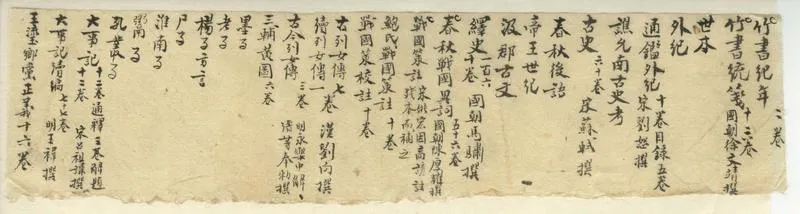 竹書紀年 二卷
竹書統箋 十二卷 國朝徐文靖撰
世本
外紀
通鑑外紀 十卷目錄五卷 宋劉恕撰
譙允南古史考
古史 六十卷 宋蘇轍撰
春秋後語
帝王世紀
汲郡古文
繹史 一百六十卷 國朝馬驌撰
春秋戰國異詞 五十六卷 國朝陳厚耀撰
戰國策註 宋姚宏因高誘註殘本而補之
鮑氏戰國策註 十卷
戰國策校註 十卷
古列女傳 七卷 漢劉向撰
續列女傳 一卷
古今列女傳 三卷 明永樂中解縉等奉勅撰
三輔黃圖 六卷
墨子
老子
楊子方言
尸子
淮南子
鬻子
孔叢子
大事記 十二卷通釋三卷解題十二卷 宋呂祖謙撰
大事記續編 七十七卷 明王禕撰
王瑬鄉黨正義 十六卷